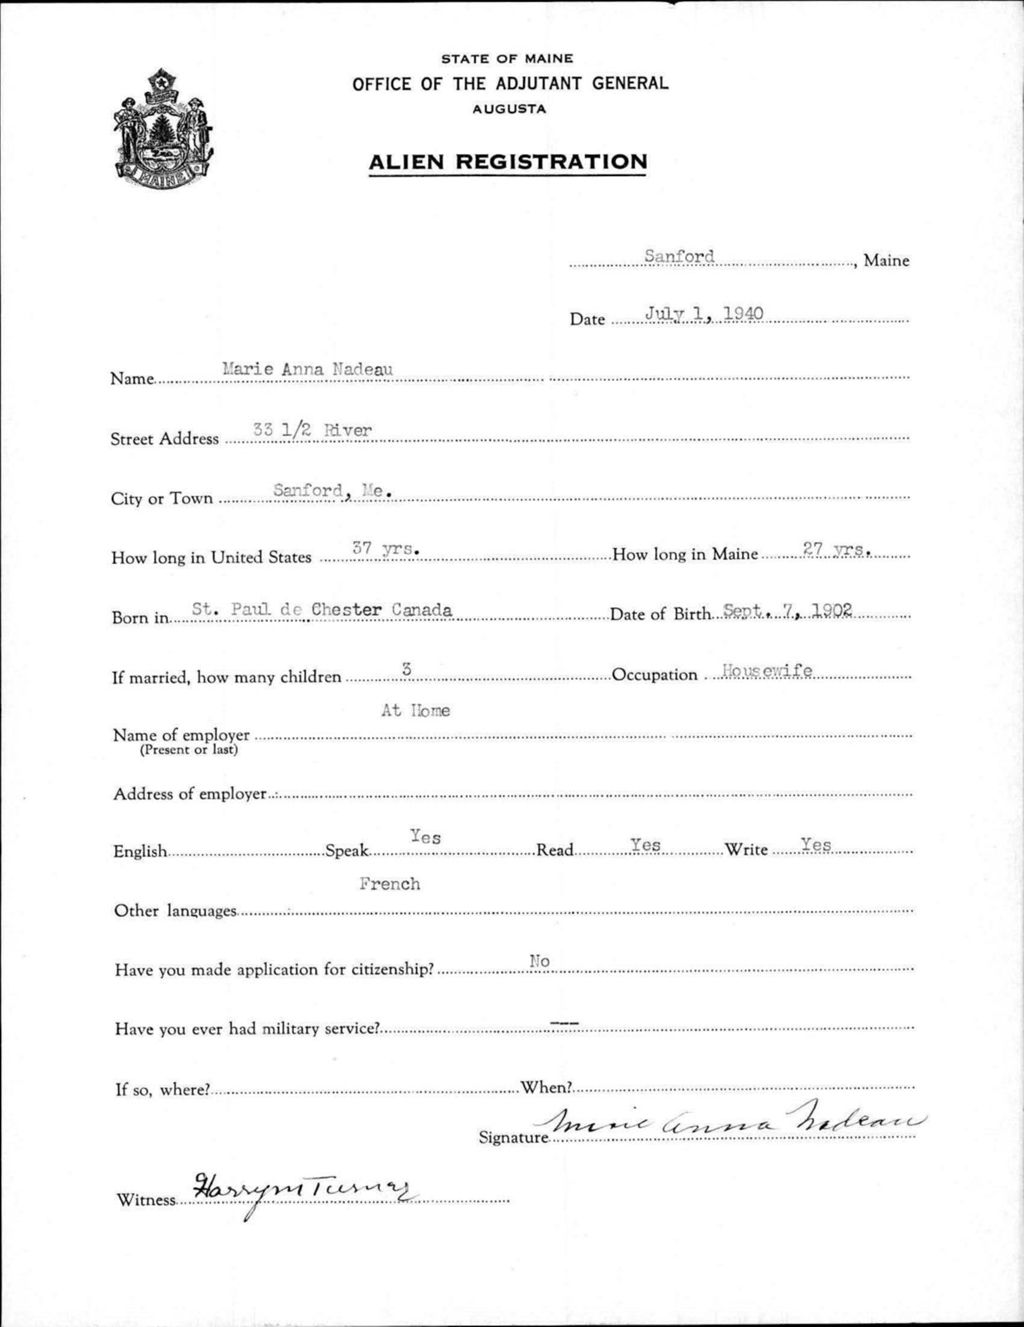 STATE OF MAINE
OFFICE OF THE ADJUTANT GENERAL
AUGUSTA
ALIEN REGISTRATION
MAINE
Sanford, Maine
Date July 1, 1940
Name Marie Anna Nadeau
Street Address 33 1/2 River
City or Town Sanford, Me.
How long in United States 37 yrs. How long in Maine 27 yrs.
Born in St. Paul de Chester Canada Date of Birth Sept. 7, 1902
If married, how many children 3 Occupation Housewife
At Home
Name of employer
(Present or last)
Address of employer
English Speak Yes Read Yes Write Yes
French
Other languages
Have you made application for citizenship? No
Have you ever had military service? ---
If so, where? When?
Signature Marie Anna Nadeau
Witness Harry M Turner